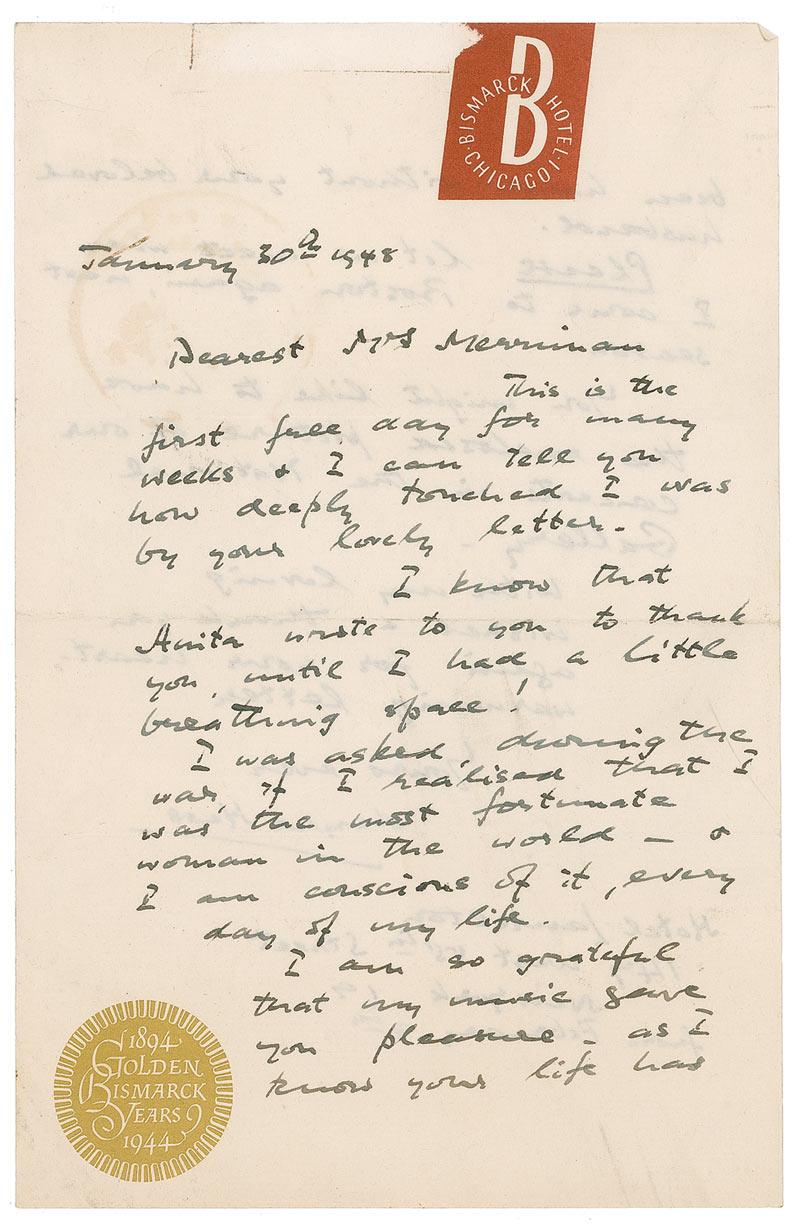 BISMARCK HOTEL
B
·CHICAGO 1·
January 30th 1948
Dearest Mrs Merriman
This is the
first free day for many
weeks & I can tell you
how deeply touched I was
by your lovely letter.
I know that
Anita wrote to you to thank
you, until I had a little
breathing space!
I was asked, during the
war, if I realised that I
was the most fortunate
woman in the world – &
I am conscious of it, every
day of my life.
I am so grateful
that my music gave
you pleasure – as I
know your life has
1894
GOLDEN
BISMARCK
YEARS
1944